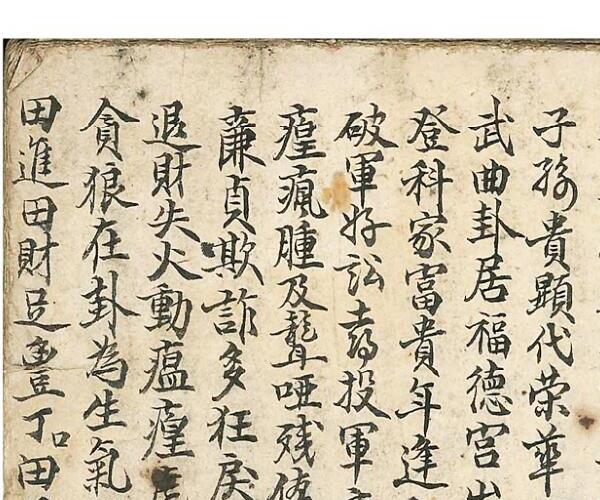 子孫貴顯代荣華
武曲卦居福德宮
登科家富貴年逢
破軍好訟尋投軍
瘟瘋腫及聾啞残
廉貞欺詐多狂戾
退財失火動瘟
貪狼在卦為生氣
田進田財足豊丁口田